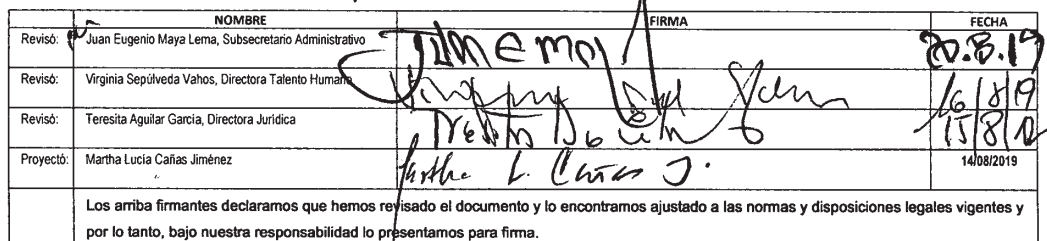 NOMBRE FIRMA FECHA
Revisó: Juan Eugenio Maya Lema, Subsecretario Administrativo 20.8.19
Revisó: Virginia Sepúlveda Vahos, Directora Talento Humano 16/8/19
Revisó: Teresita Aguilar García, Directora Jurídica 15/8/
Proyectó: Martha Lucía Cañas Jiménez Martha L. Cañas J. 14/08/2019
Los arriba firmantes declaramos que hemos revisado el documento y lo encontramos ajustado a las normas y disposiciones legales vigentes y
por lo tanto, bajo nuestra responsabilidad lo presentamos para firma.